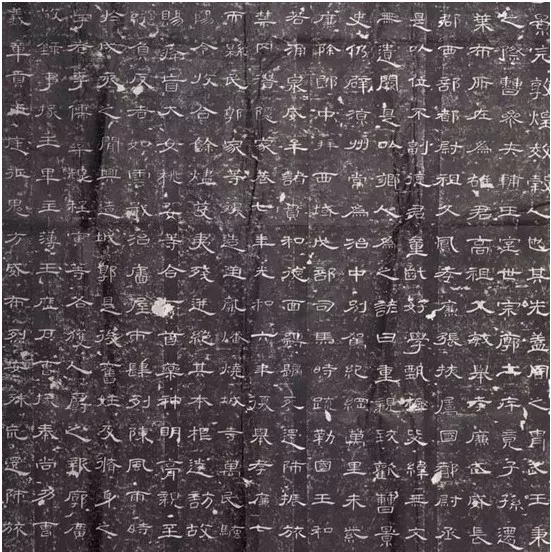 景完敦煌效穀人也其先蓋周之胄武王秉
之際曹參夾輔王室世宗廓土斥竟子孫遷
葉布所在為雄君高祖父敏舉孝廉武威長
郡西部都尉祖父鳳孝廉張掖屬國都尉丞
是以位不副德君童齔好學甄極毖緯無文
無遺闕是以鄉人為之諺曰重親致歡曹景
史仍辟涼州常為治中別駕紀綱萬里朱紫
廉除郎中拜西域戊部司馬時疏勒國王和
若涌泉威牟諸賁和德面縛歸死還師振旅
禁冈潛隱家巷七年光和六年復舉孝廉七
而縣民郭家等復造逆亂燔燒城寺萬民騷
陽令收合餘燼芟夷殘迸絕其本根遂訪故
賜癃盲大女桃婓等合七首藥神明膏親至
繈負反者如雲戢治廧屋市肆列陳風雨時
於戌亥之間興造城郭是後舊姓及脩身之
學者李儒欒規程寅等各獲人爵之報廓廣
敞錄事掾王畢主薄王歷戶曹掾秦尚功曹
義章貢王庭征鬼方威布烈安殊巟還師旅